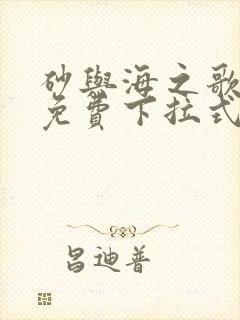 砂與海之歌
免費下拉式
昌迪普